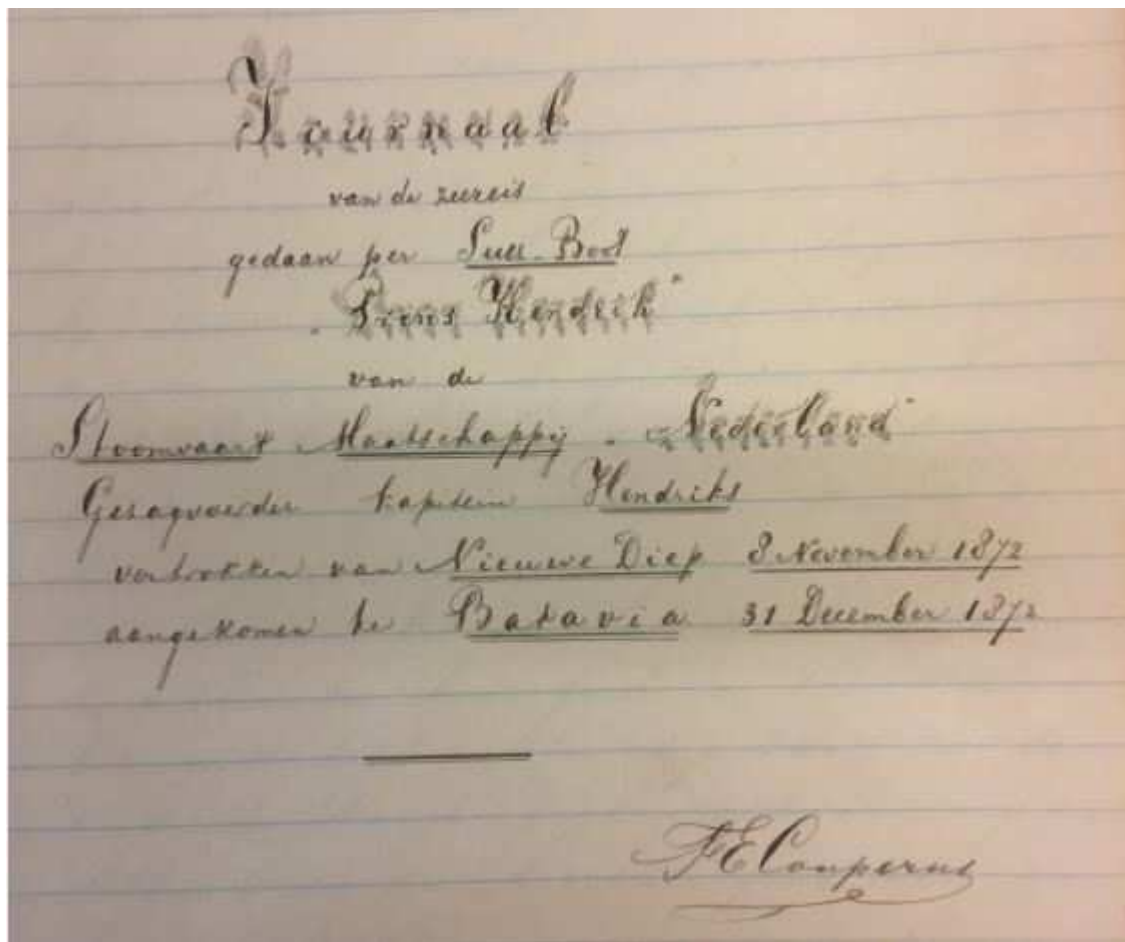 Journaal
van de zeereis
gedaan per Suez-Boot
„Prins Hendrik"
van de
Stoomvaart Maatschappij „Nederland"
Gezagvoerder kapitein Hendriks
vertrokken van Nieuwe Diep 8 November 1872
aangekomen te Batavia 31 December 1872
F E Couperus